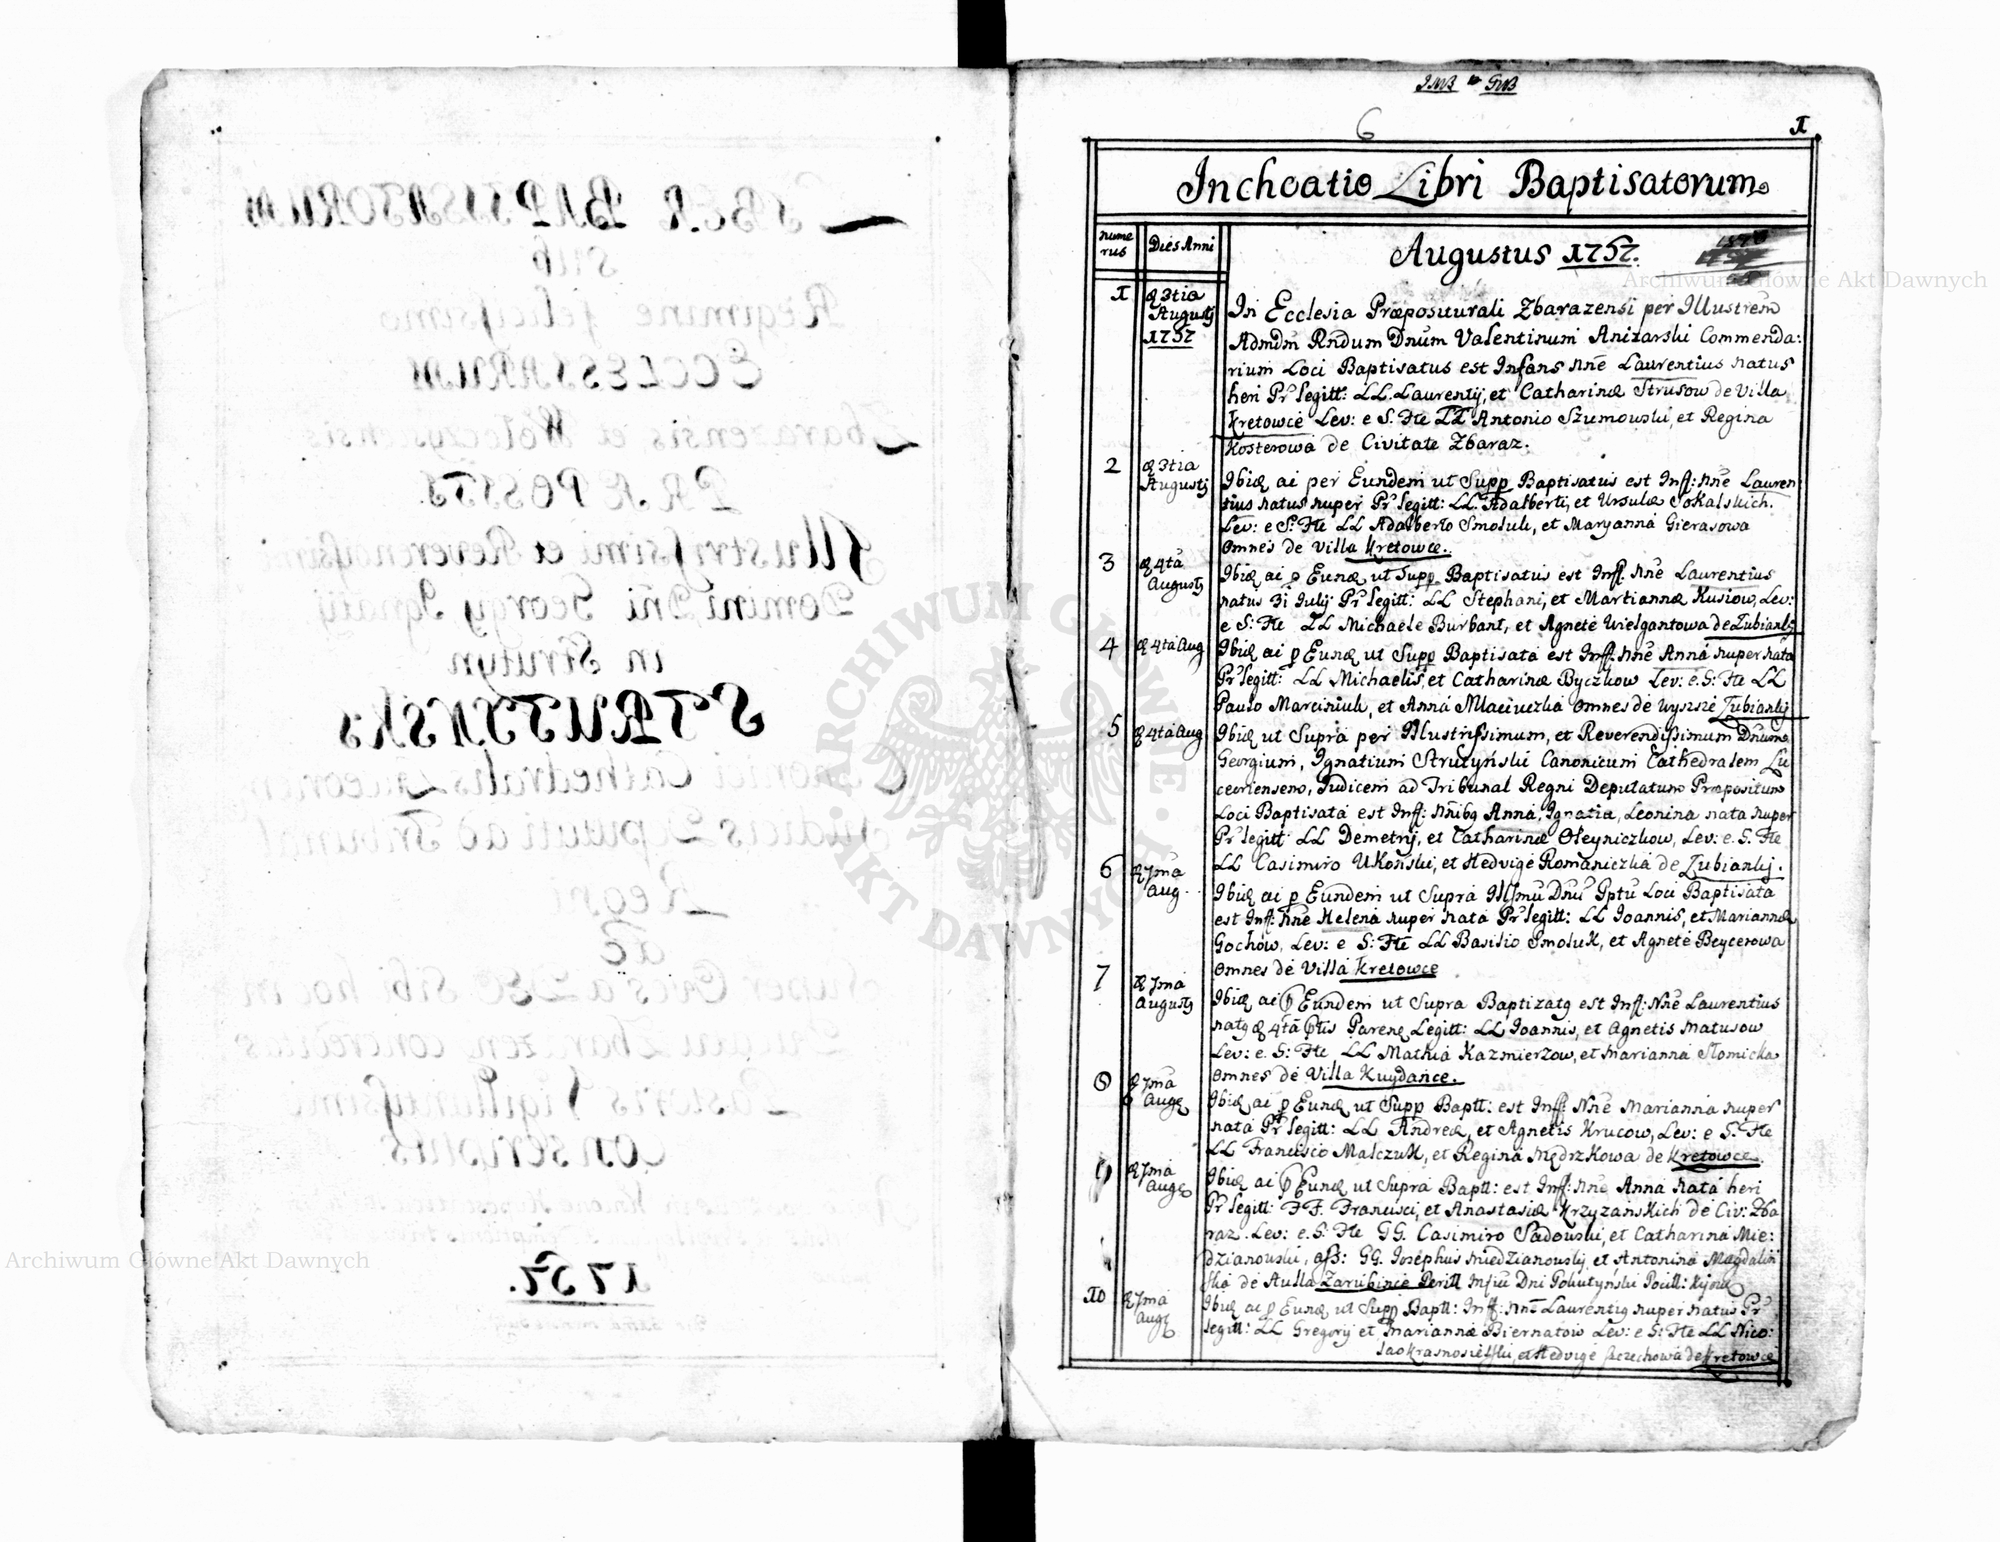 LIBER BAPTISATORUM
sub
Regimine felicissimo
ECCLESIARUM
Zbarazensis et Woloczyscensis
PRÆPOSITI
Illustrissimi et Reverendissimi
Domini Dñi Georgy Ignatij
in Strutyn
STRUTYNSKI
Canonici Cathedralis Luceorien
Judicis Deputati ad Tribunal
Regni
ac
super Oves a DEO sibi hoc in
concreditas
Pastoris Vigilantissimi
conscriptus
1757.
6
1
Inchoatio Libri Baptisatorum
nume
rus
Dies Anni
Augustus 1757.
1
3tia
Augustj
1757
In Ecclesia Præpositurali Zbarazensi per Illustrem
Admdm Rndum Dnum Valentinum Anizarski Commenda:
rium Loci Baptisatus est Infans nñe Laurentius natus
heri Pr legitt: LL. Laurentij, et Catharinæ Strusow de Villa
Kretowce Lev: e S. Fte LL Antonio Szumowski, et Regina
Kosterowa de Civitate Zbaraz.
2
3tia
Augustj
Ibid ai per Eundem ut Supp Baptisatus est Inff: nñe Lauren
tius natus nuper Pr legitt: LL. Adalberti, et Ursulæ Sokalskich.
Lev: e S: Fte LL Adalberto Smoluk, et Maryanna Gierasowa
omnes de Villa Kretowce.
3
4ta
Augustj
Ibid ai p Eund ut Supp Baptisatus est Inff: Nñe Laurentius
natus 31 Julij Pr legitt: LL Stephani, et Martiannæ Kusiow, Lev:
e S: Fte LL Michaele Burbant, et Agnete Wielgantowa de Lubianki
4
4ta Aug
Ibid ai p Eund ut Supp Baptisata est Inff: Nñe Anna nuper nata
Pr legitt: LL Michaelis, et Catharinæ Byczkow Lev: e. S: Fte LL
Paulo Marciniuk, et Anna Mlaciuczka omnes de wyszse Lubianki
5
4ta Aug
Ibid ut Supra per Illustrissimum, et Reverendissimum Dnum
Georgium, Ignatium Strutyński Canonicum Cathedralem Lu
ceoriensem, Judicem ad Tribunal Regni Deputatum Præpositum
Loci Baptisata est Inff: Nñibg Anna, Ignatia, Leonina nata nuper
Pr legitt LL Demetrij, et Catharinæ Oleyniczkow, Lev: e. S. Fte
LL Casimiro Ukoński, et Hedvige Romaniczka de Lubianki.
6
7ma
Aug
Ibid ai p Eundem ut Supra Illsmu Dnu Pptu Loci Baptisata
est Inff: Nñe Helena nuper nata Pr legitt: LL Joannis, et Mariannæ
Gochów, Lev: e S: Fte LL Basilio Smoluk, et Agnete Beycerowa
omnes de Villa Kretowce
7
7ma
Augustj
Ibid ai p Eundem ut Supra Baptizatg est Inff: Nñe Laurentius
natg 4ta ptis Paren Legitt: LL Joannis, et Agnetis Matusow
Lev: e. S: Fte LL Mathia Kazmierzow, et Marianna Slomicka
omnes de Villa Kuydance.
8
7ma
Aug
Ibid ai p Eund ut Supp Baptt: est Inff: Nñe Marianna nuper
nata Pr legitt: LL Andreæ, et Agnetis Krucow, Lev: e S: Fte
LL Francisco Malczuk, et Regina Mędrzkowa de Kretowce.
9
7ma
Aug
Ibid ai p Eund ut Supra Baptt: est Inff: Nñe Anna nata heri
Pr legitt: FF. Francisci, et Anastasiæ Krzyzanskich de Civ: Zba
raz. Lev: e. S: Fte GG. Casimiro Sadowski, et Catharina Mie:
dzianowski, ass: GG. Josephus Miedzianowskj et Antonina Magdalin
ska de Aulla Zarubince Peritt Mgfici Dni Poliutyński Pocill: Kijow
10
7ma
Aug
Ibid ai p Eund, ut Supp Baptt: Inff: Nñe Laurentig nuper natus Pr
legitt: LL Gregorij et Mariannæ Biernatow Lev: e S: Fte LL Nico:
lao Krasnosielski, et Hedvige Szczechowa de Kretowce
ARCHIWUM GŁÓWNE AKT DAWNYCH
Archiwum Główne Akt Dawnych
Archiwum Główne Akt Dawnych